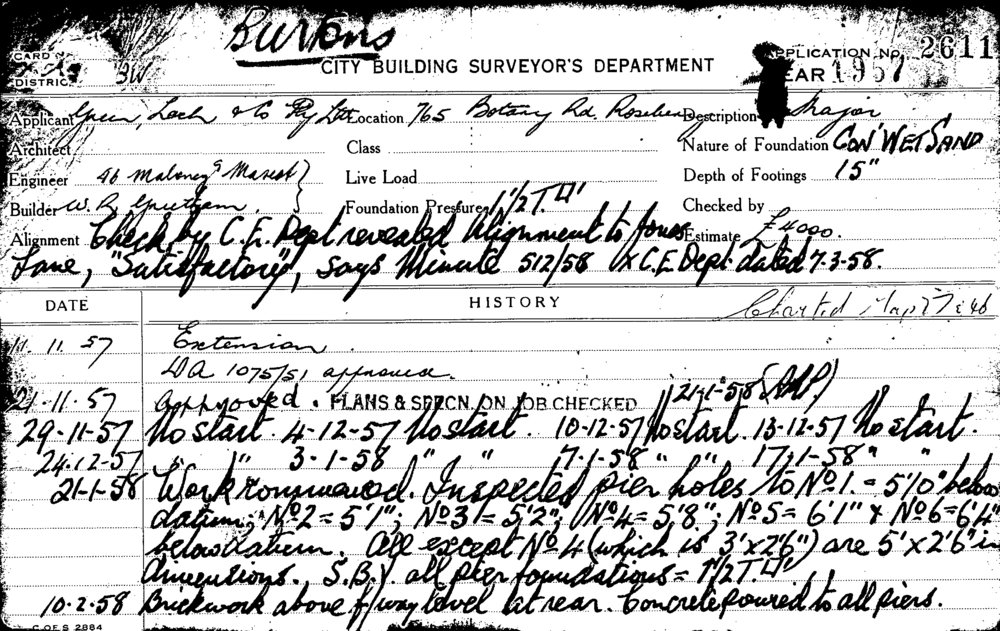 Burtons
CARD No.
DISTRICT BW
CITY BUILDING SURVEYOR'S DEPARTMENT
APPLICATION No. 2611
YEAR 1957
Applicant Green, Leech & Co Pty Ltd Location 765 Botany Rd. Rosebery Description Major
Architect Class Nature of Foundation CON' WET SAND
Engineer 46 Maloney St Mascot Live Load Depth of Footings 15"
Builder W. R. Foundation Pressure 1 1/2 T. Checked by
Alignment Check by C.E. Dept revealed Alignment to Jones Estimate £4000.
Lane, "Satisfactory", says Minute 512/58 X C.E. Dept. dated 7.3.58.
DATE HISTORY Charted Map
11. 11. 57 Extension.
DA 1075/51 approved.
21-11-57 Approved. PLANS & SPECN. ON JOB CHECKED 21-1-58
29-11-57 No start. 4-12-57 No start. 10-12-57 No start. 13-12-57 No start.
24.12-57 " " 3-1-58 " " 7-1-58 " " 17-1-58 " "
21-1-58 Work commenced. Inspected pier holes to No 1. = 5'10" below
datum; No 2 = 5'1"; No 3 = 5'2"; No 4 = 5'8"; No 5 = 6'1" & No 6 = 6'4"
below datum. All except No 4 (which is 3'x2'6") are 5'x2'6" in
dimentions. S.B.V. all pier foundations = 1 1/2 T.
10-2-58 Brickwork above f/way level at rear. Concrete poured to all piers.
C. OF S. 2884